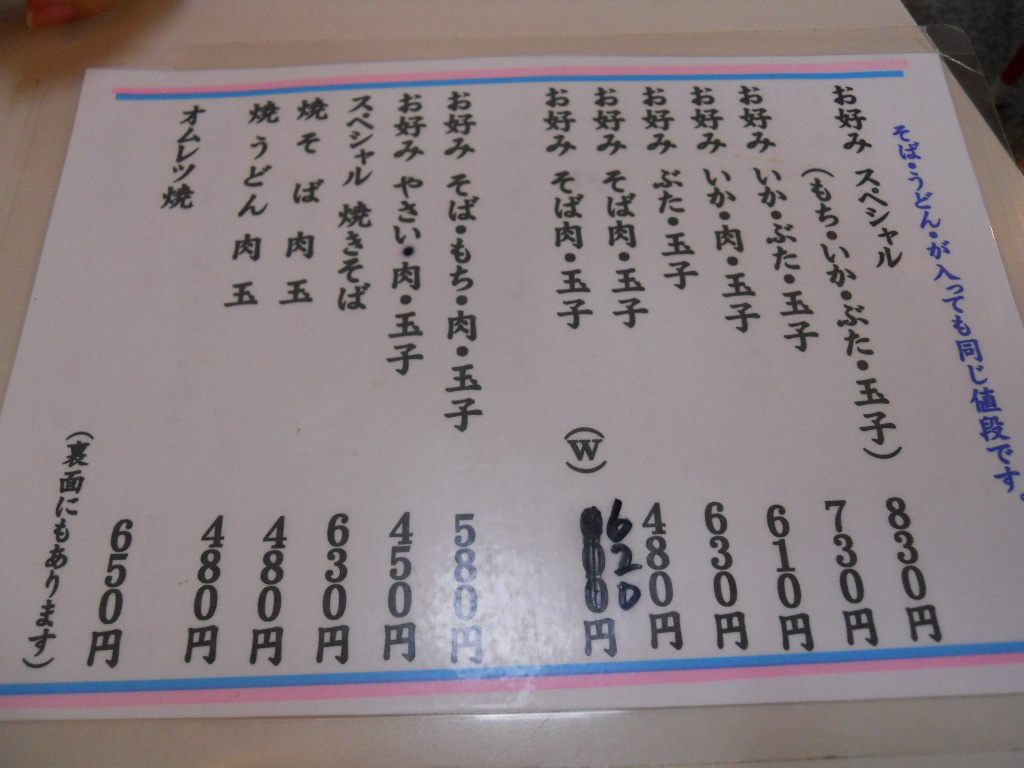 そば・うどん・が入っても同じ値段です。
お好み スペシャル 830円
(もち・いか・ぶた・玉子)
お好み いか・ぶた・玉子 730円
お好み いか・肉・玉子 610円
お好み ぶた・玉子 630円
お好み そば肉・玉子 480円
お好み そば肉・玉子 (W) 620円
お好み そば・もち・肉・玉子 580円
お好み やさい・肉・玉子 450円
スペシャル 焼きそば 630円
焼そば 肉 玉 480円
焼うどん 肉 玉 480円
オムレツ焼 650円
(裏面にもあります)